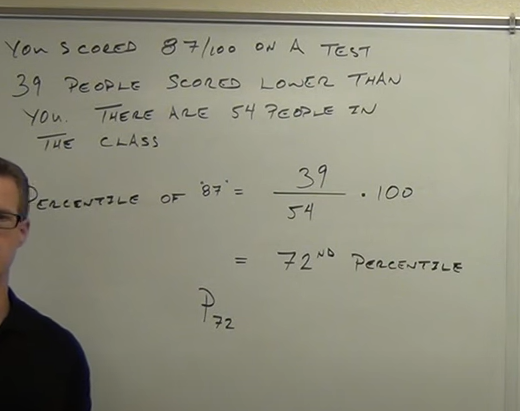 YOU SCORED 87/100 ON A TEST
39 PEOPLE SCORED LOWER THAN
YOU. THERE ARE 54 PEOPLE IN
THE CLASS
PERCENTILE OF "87" = 39/54 · 100
= 72ND PERCENTILE
P72